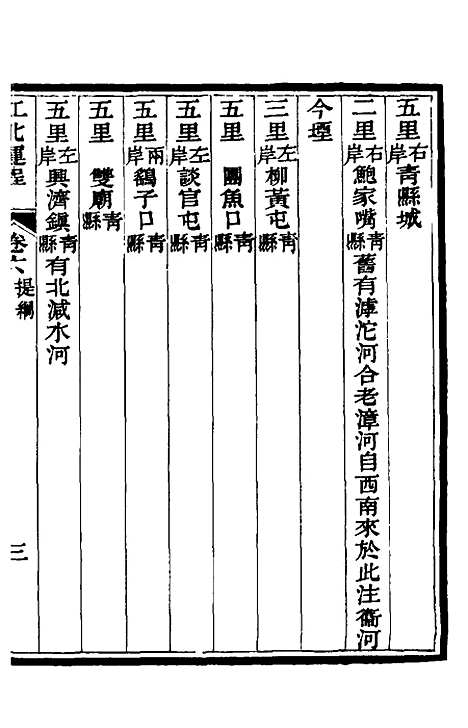 五里右岸青縣城
二里右岸鮑家嘴青縣舊有滹沱河合老漳河自西南來於此注衞河
今堙
三里左岸柳黃屯青縣
五里團魚口青縣
五里左岸談官屯青縣
五里兩岸鷂子口青縣
五里雙廟青縣
五里左岸興濟鎮青縣有北減水河
江北運程 卷六 提綱 三